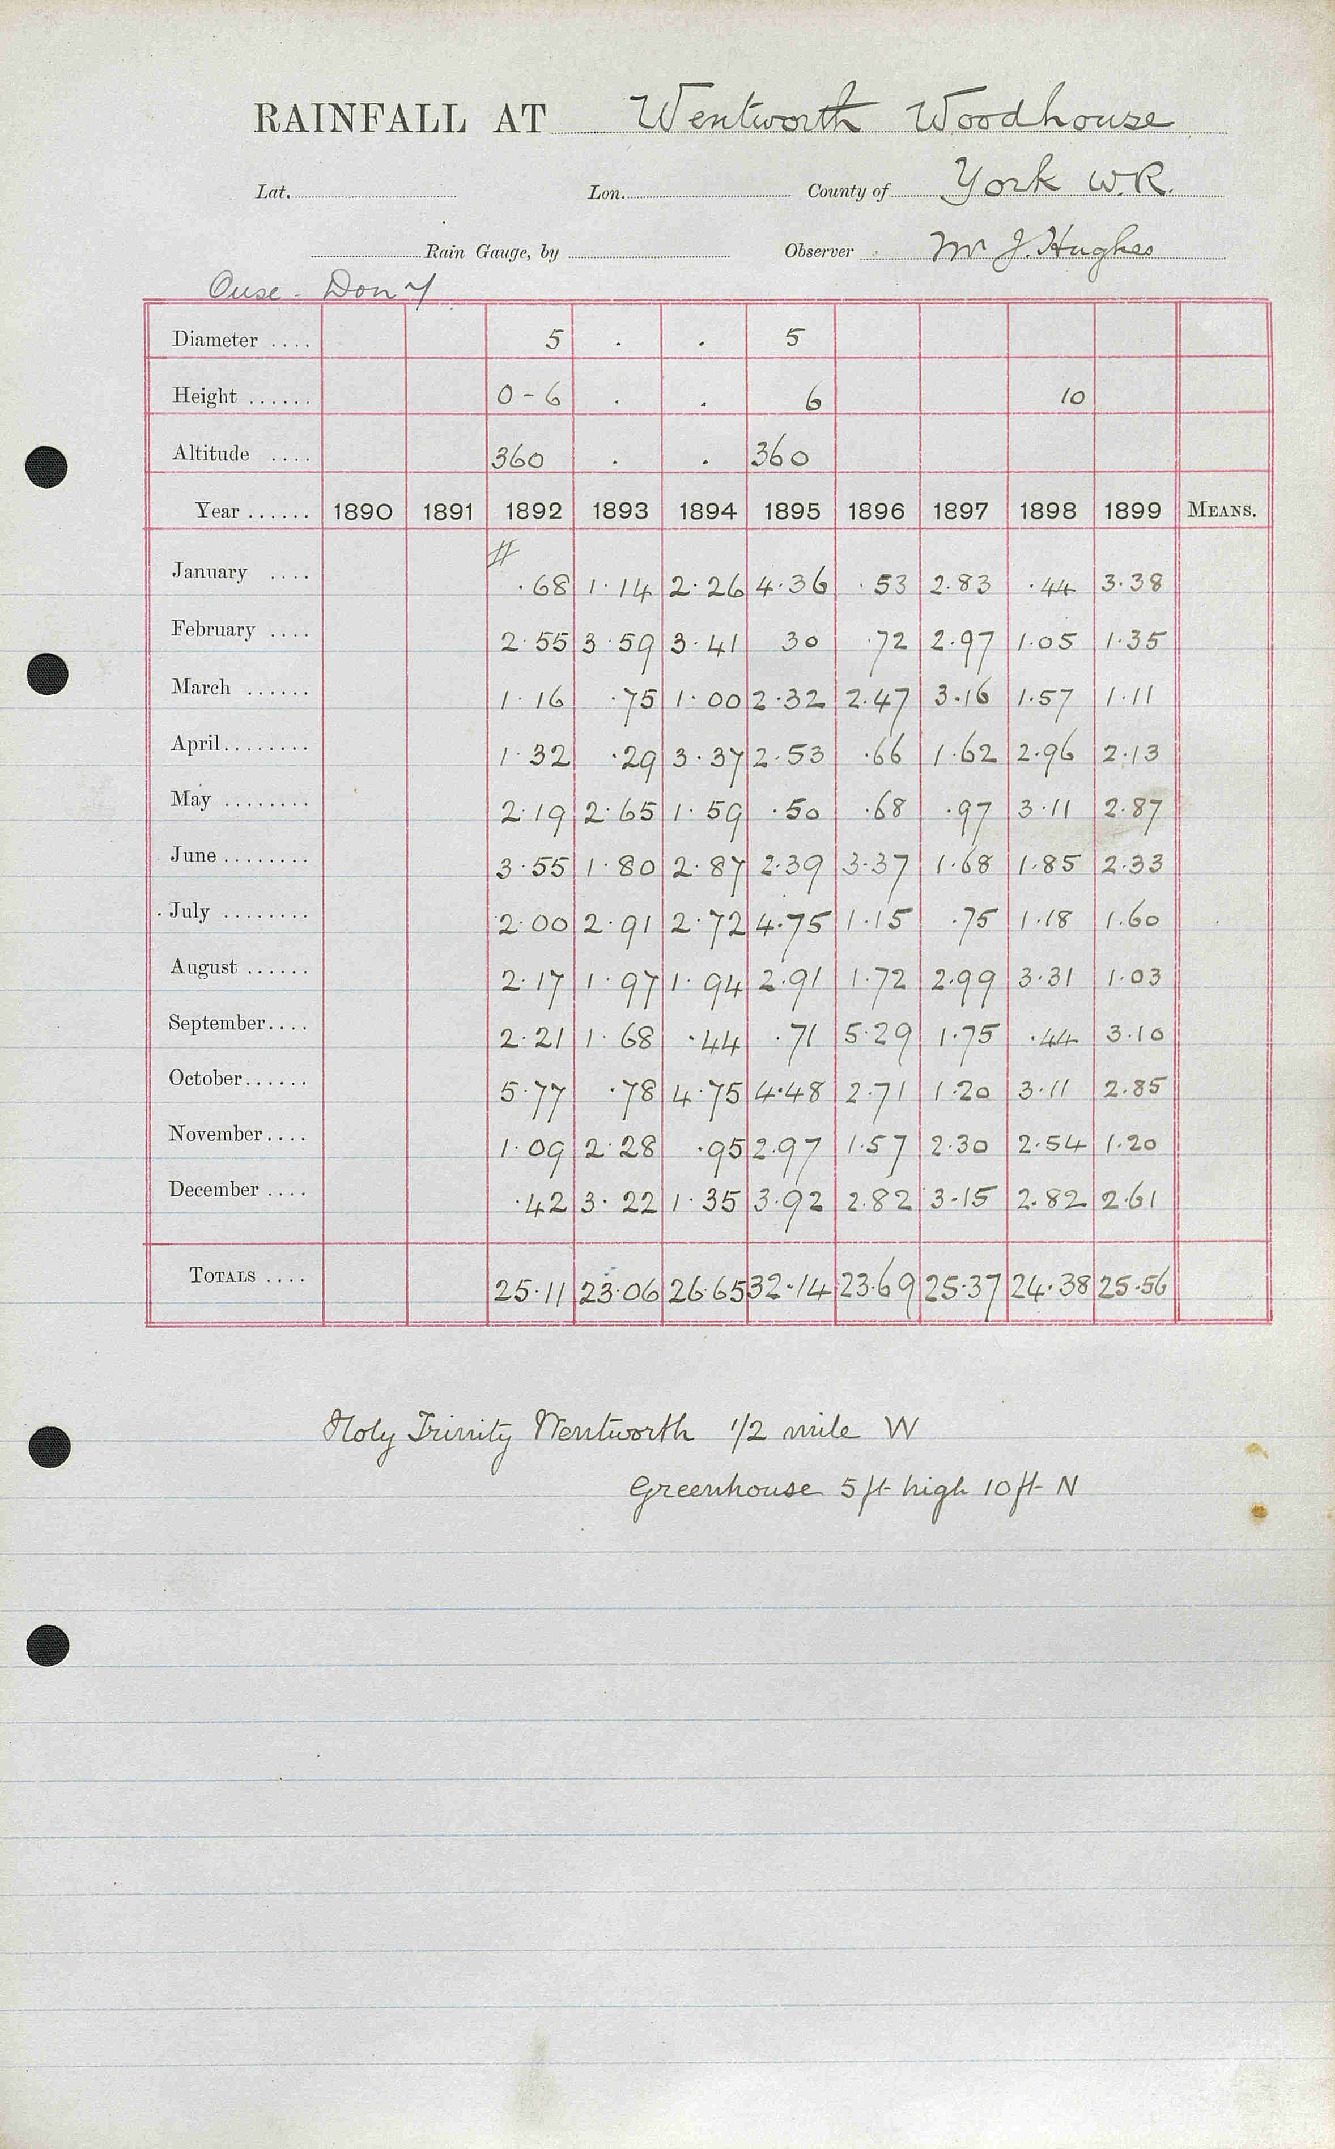 RAINFALL AT Wentworth Woodhouse
Lat. Lon. County of York W.R.
Rain Gauge, by Observer Mr J. Hughes
Ouse - Don
Diameter .... 5 . . 5
Height ...... 0-6 . . 6 10
Altitude .... 360 . . 360
Year ...... 1890 1891 1892 1893 1894 1895 1896 1897 1898 1899 MEANS.
#
January .... .68 1.14 2.26 4.36 .53 2.83 .44 3.38
February .... 2.55 3.59 3.41 30 .72 2.97 1.05 1.35
March ...... 1.16 .75 1.00 2.32 2.47 3.16 1.57 1.11
April ........ 1.32 .29 3.37 2.53 .66 1.62 2.96 2.13
May ........ 2.19 2.65 1.59 .50 .68 .97 3.11 2.87
June ........ 3.55 1.80 2.87 2.39 3.37 1.68 1.85 2.33
July ........ 2.00 2.91 2.72 4.75 1.15 .75 1.18 1.60
August ...... 2.17 1.97 1.94 2.91 1.72 2.99 3.31 1.03
September .... 2.21 1.68 .44 .71 5.29 1.75 .44 3.10
October ...... 5.77 .78 4.75 4.48 2.71 1.20 3.11 2.85
November .... 1.09 2.28 .95 2.97 1.57 2.30 2.54 1.20
December .... .42 3.22 1.35 3.92 2.82 3.15 2.82 2.61
TOTALS .... 25.11 23.06 26.65 32.14 23.69 25.37 24.38 25.56
Holy Trinity Wentworth 1/2 mile W
Greenhouse 5 ft high 10 ft N